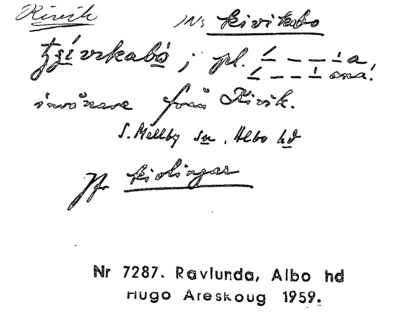 Kivik ms kivikabo
tʒívrkabò; pl. ´ _ _ _ ì a,
´ _ _ _ ì ana!
invånare från Kivik.
S. Mellby sn, Albo hd
Jfr kiolingar
Nr 7287. Ravlunda, Albo hd
Hugo Areskoug 1959.